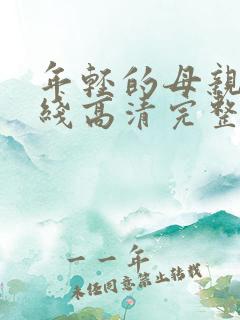 年轻的母親
綫高清完整
一一年
未经同意禁止转载